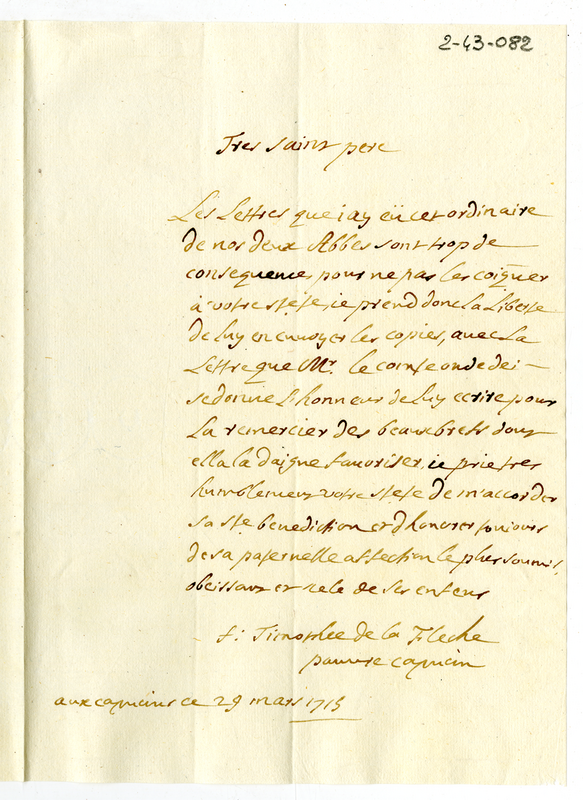 2-43-082
Tres saint pere
Les Lettres que i'ay eü cet ordinaire
de nos deux Abbes sont trop de
consequence pour ne pas les coiq̃uer
à votre steté, ie prend donc La Liberté
de luy en envoyer les copies, avec La
Lettre que Mr. le comte ondedei
se donne L'honneur de luy ecrire pour
La remercier des beaux brefs dont
ella la daigné favoriser, ie prie tres
humblement votre steté de m'accorder
sa ste benediction et d'honorer toujours
de sa paternelle affection le plus soumis,
obeissant et zelé de ses enfens
f: Timothée de la Fleche
pauvre capucin
aux capucins ce 29 mars 1715